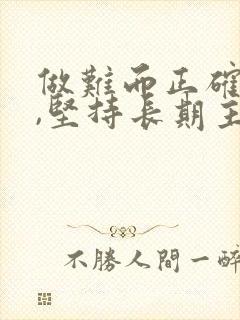 做難而正確
,堅持長期主
不勝人間一醉